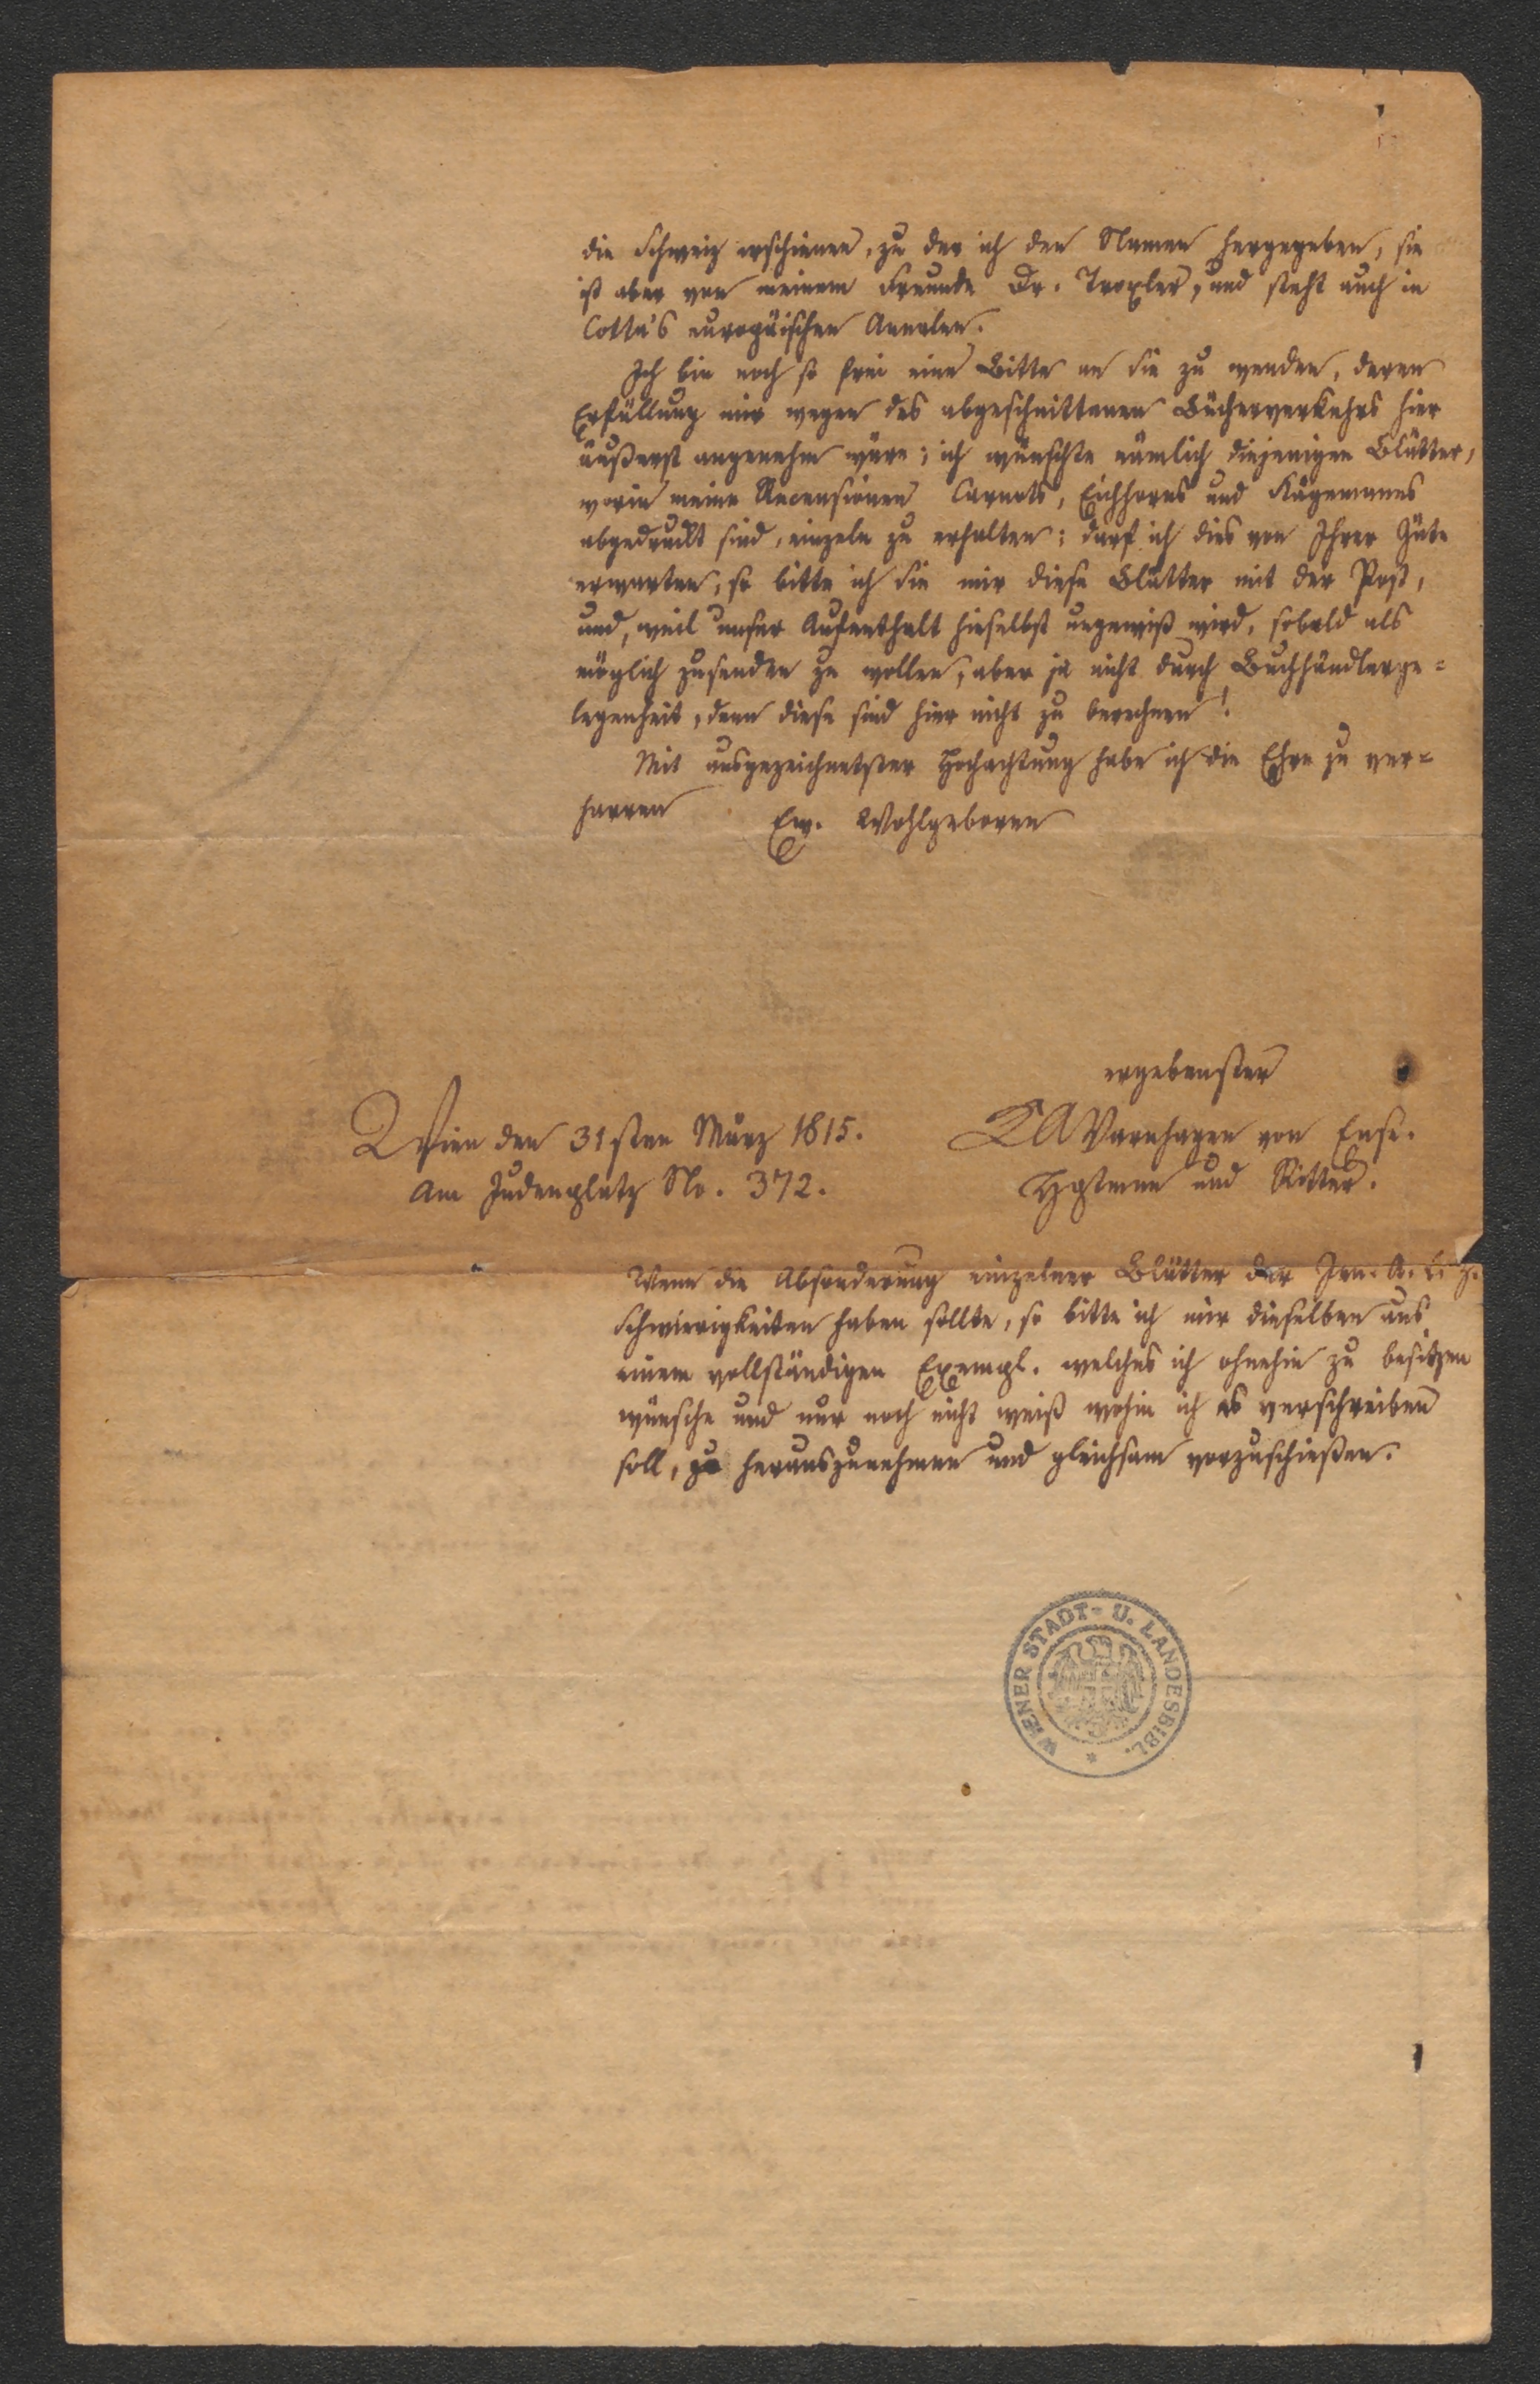 die Schweiz erschienen, zu der ich den Namen hergegeben, sie
ist aber von meinem Freunde Dr. Troxler, und steht auch in
Cotta's europäischen Annalen.
Ich bin noch so frei eine Bitte an Sie zu wenden, deren
Erfüllung mir wegen des abgeschnittenen Bücherverkehrs hier
äußerst angenehm wäre; ich wünschte nämlich diejenigen Blätter,
worin meine Recensionen Carnots, Eichhorns und Stägemanns
abgedruckt sind, einzeln zu erhalten; darf ich dies von Ihrer Güte
erwarten, so bitte ich Sie mir diese Blätter mit der Post,
und, weil unser Aufenthalt hieselbst ungewiß wird, sobald als
möglich zusenden zu wollen, aber ja nicht durch Buchhändlerge=
legenheit, denn diese sind hier nicht zu berechnen!
Mit ausgezeichnetster Hochachtung habe ich die Ehre zu ver=
harren
Ew. Wohlgeboren
ergebenster
Wien den 31sten März 1815.
KAVarnhagen von Ense.
Am Judenplatz No. 372.
Hptmann und Ritter.
Wenn die Absonderung einzelner Blätter der Jen. A. L. Z.
Schwierigkeiten haben sollte, so bitte ich mir dieselben aus
einem vollständigen Exempl. welches ich ohnehin zu besitzen
wünsche und nur noch nicht weiß wohin ich es verschreiben
soll, zu herauszunehmen und gleichsam vorzuschießen.
WIENER STADT- U. LANDESBIBL.